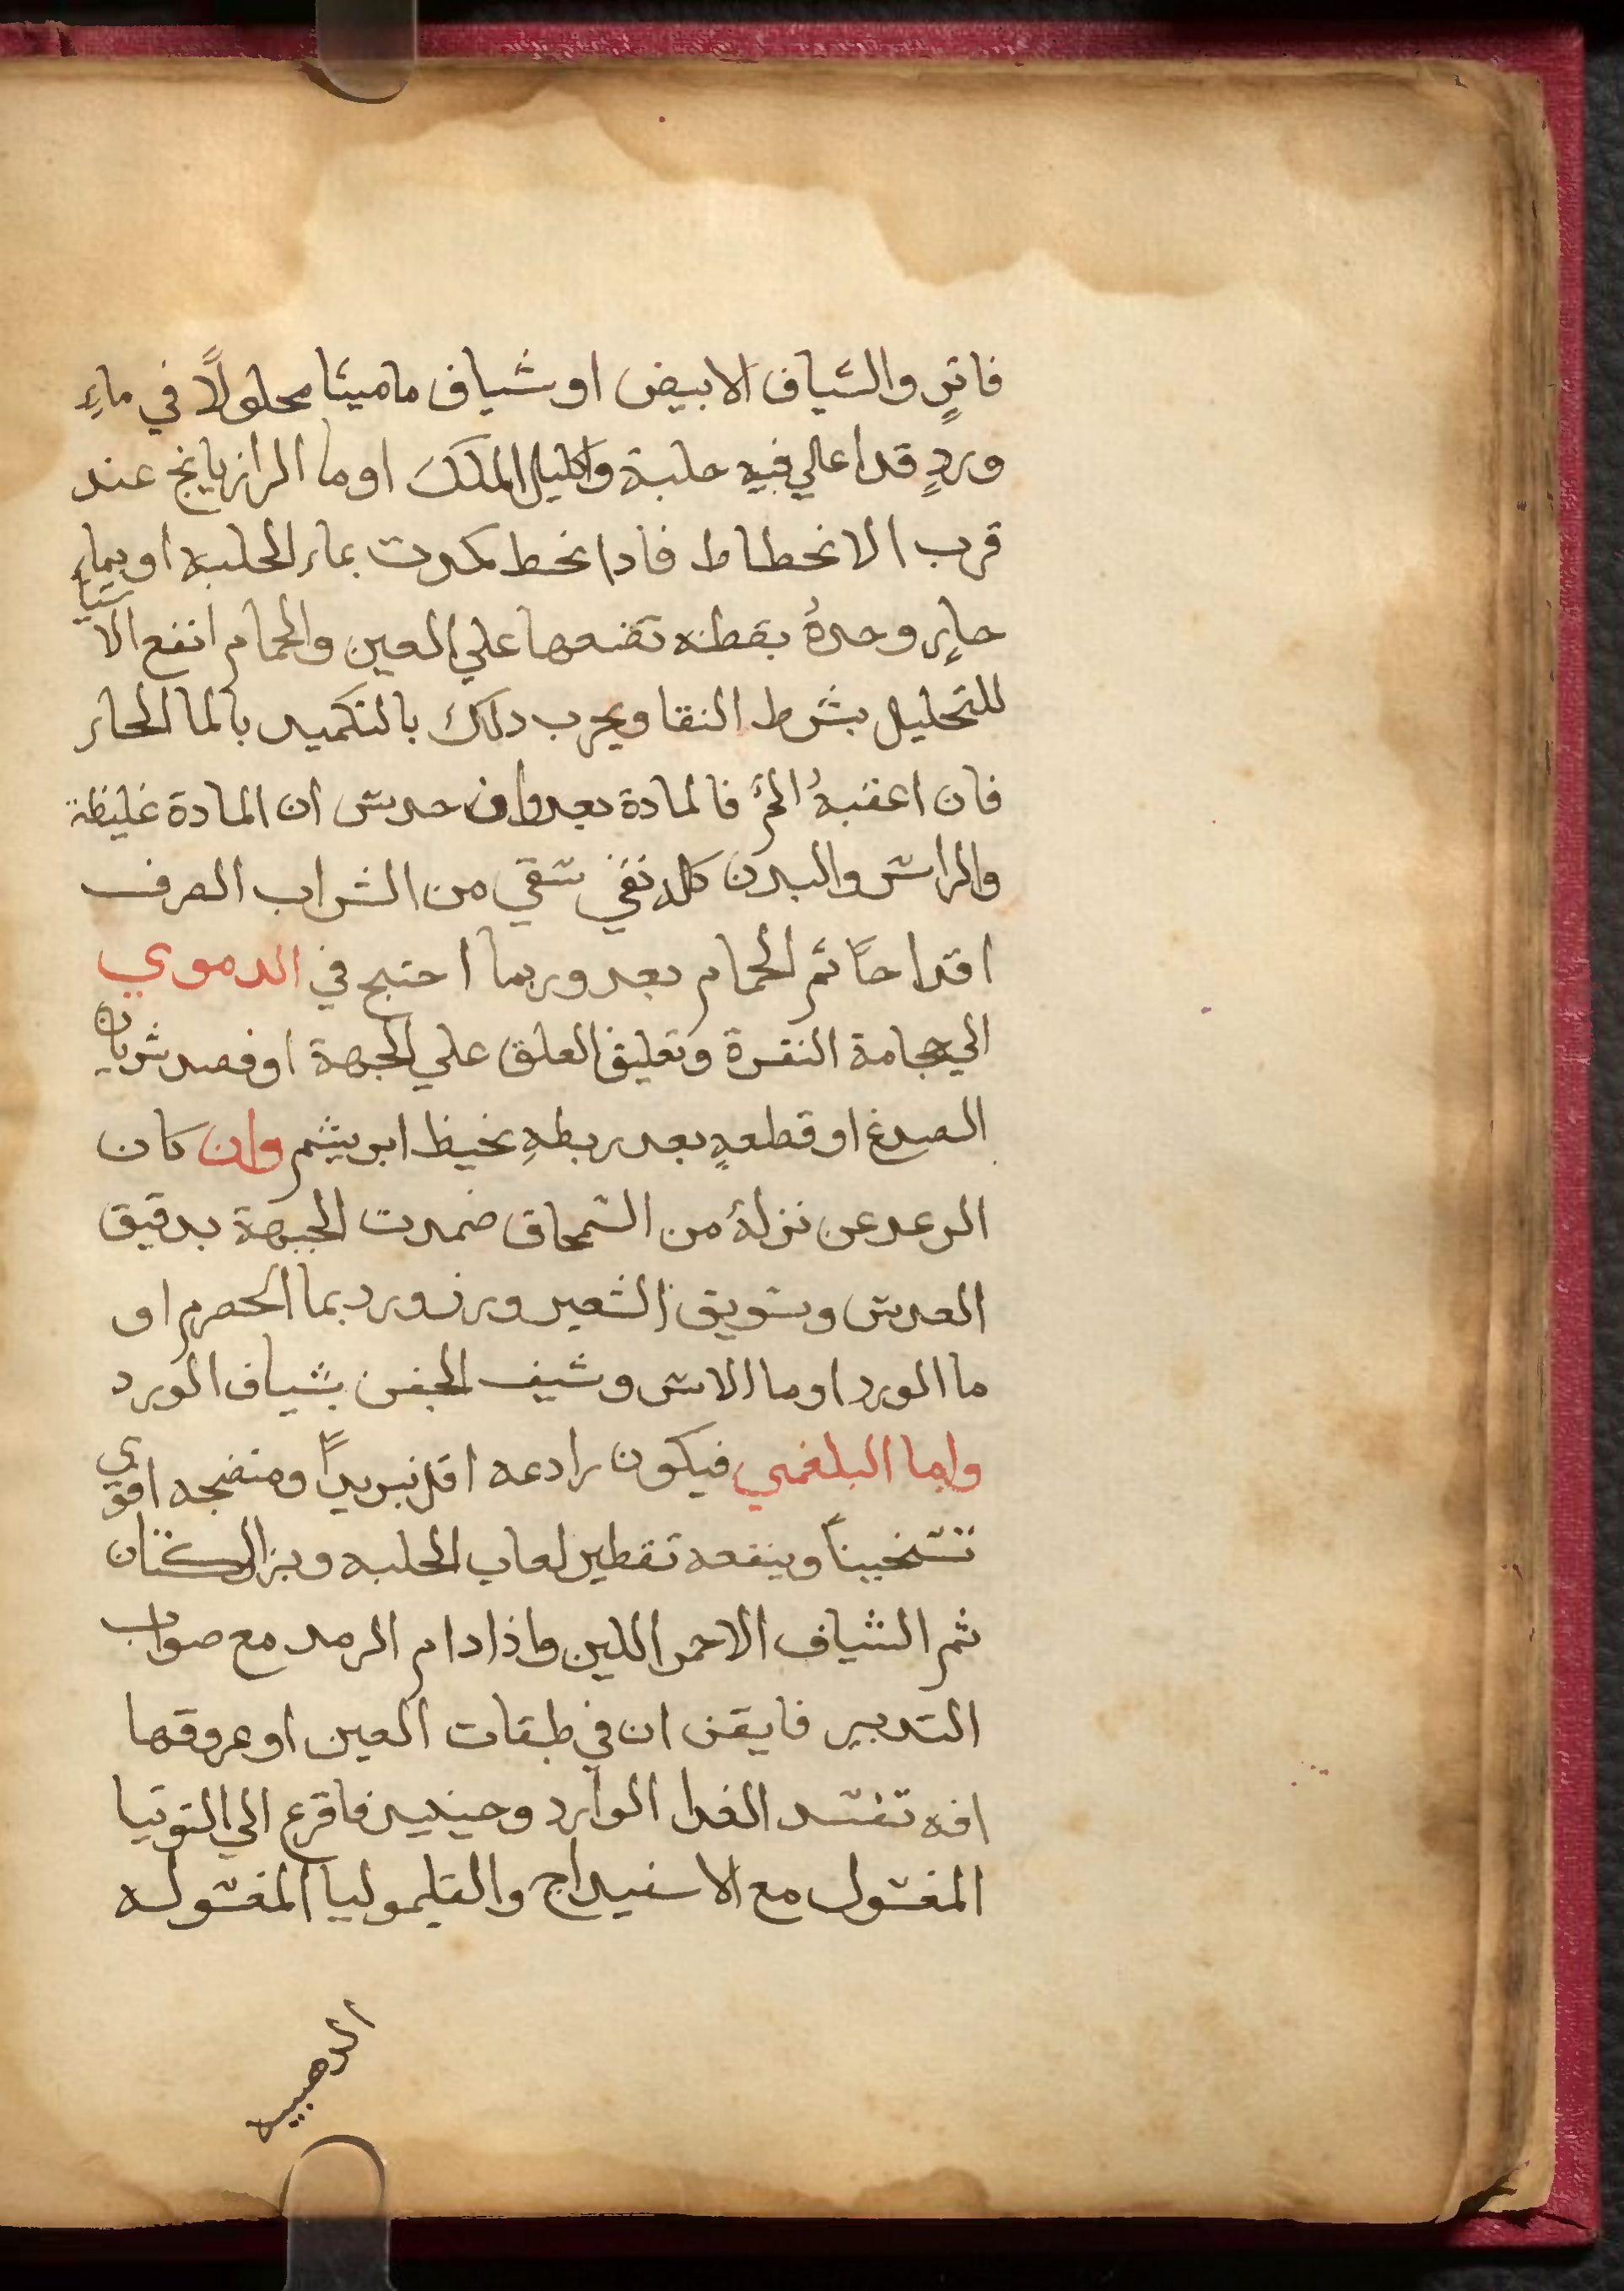 فاترٍ والشياف الابيض او شياف ماميثا محلولاً في ماءِ
وردٍ قد اغلي فيه حلبة واكليل الملك او ما الرازيانج عند
قرب الانحطاط فادا نحط كمدت بماء الحلبه او بماءٍ
حارٍ وحدهُ بقطنه تضعها علي العين والحمام انفع الاشيا
للتحليل بشرط النقا ويجرب دلك بالتكميد بالما الحار
فان اعقبهُ الحرَّ فالمادة بعد وان حدس ان المادة غليظة
والراس والبدن كله نقي سقي من الشراب الصرف
اقداحاً ثم الحمام بعد وربما احتيج في الدموي
الي حجامة النقرة وتعليق العلق علي الجبهة او فصد شريان
الصدغ او قطعهِ بعد ربطهِ بخيط ابريشم وان كان
الرعد عن نزلة من السمحاق ضمدت الجبهة بدقيق
العدس وسويق الشعير وبزر ورد بما الحصرم او
ما الورد او ما الاس وشيف الجفن بشياف الورد
واما البلغمي فيكون رادعه اقل تبريداً ومنضجه اقوي
تسخيناً وينفعه تقطير لعاب الحلبه وبزر الكتان
ثم الشياف الاحمر اللين واذا دام الرمد مع صواب
التدبير فايقن ان في طبقات العين او عروقها
افه تفسد الغدا الوارد وحينيد فافزع الي التوتيا
المغسول مع الاسفيداج والقليموليا المغسوله
الدهبيه